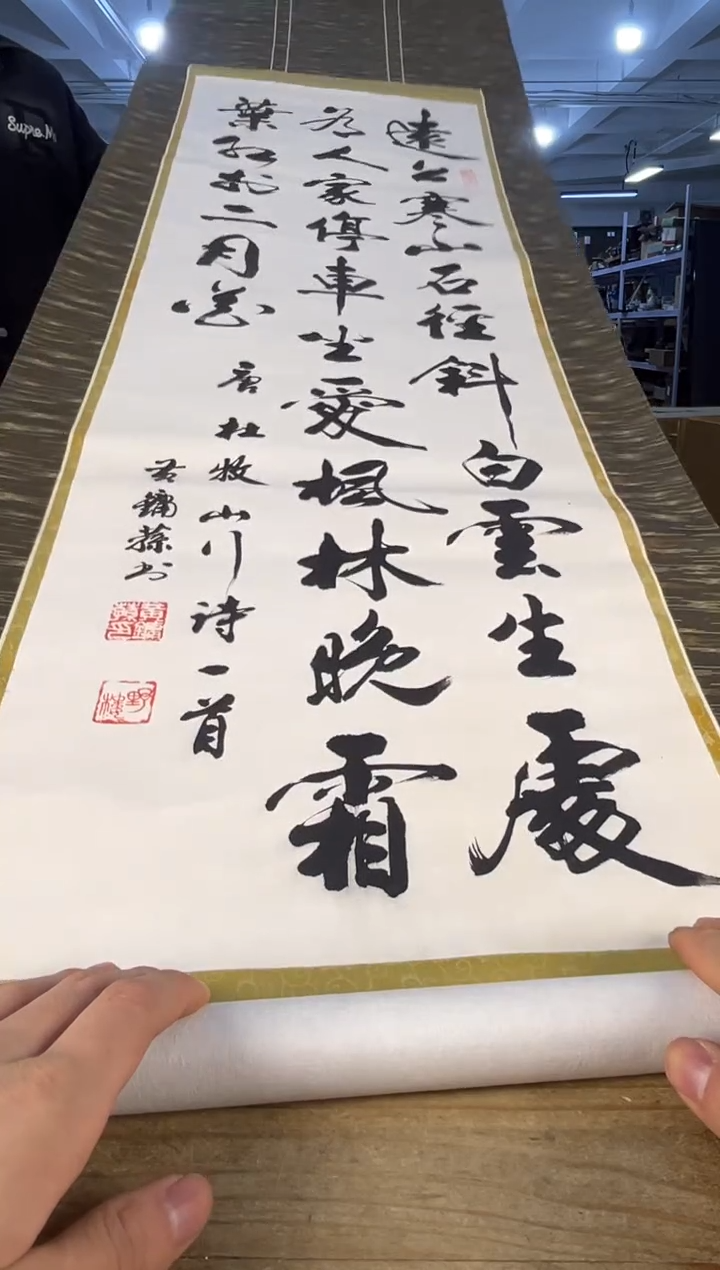 遠上寒山石徑斜白雲生處
有人家停車坐愛楓林晚霜
葉紅於二月花
唐杜牧山行诗一首
鏞蓀书